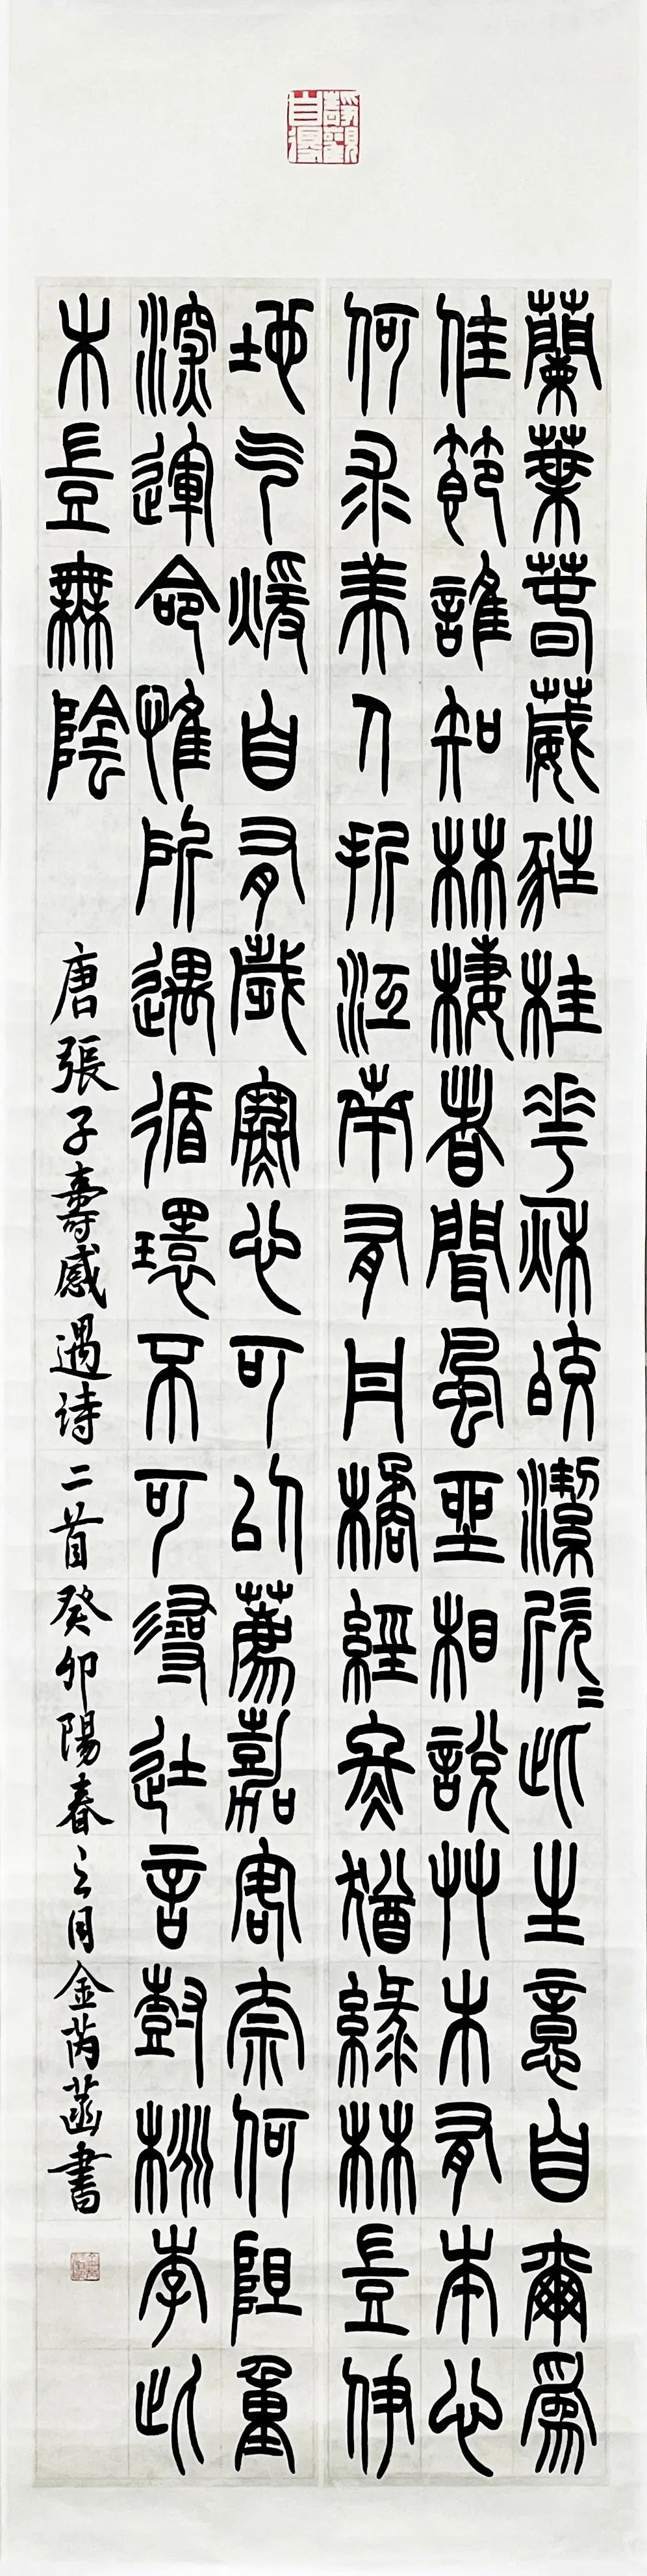 靜觀自得
蘭葉春葳蕤桂華秋皎潔欣〻此生意自爾爲
佳節誰知林棲者聞風坐相說艸木有本心
何求美人折江南有丹橘經冬猶綠林豈伊
地气煖自有歲寒心可以薦嘉客奈何阻重
深運命惟所遇循環不可尋徒言樹桃李此
木豈無陰
唐張子壽感遇詩二首癸卯陽春三月金芮菡書